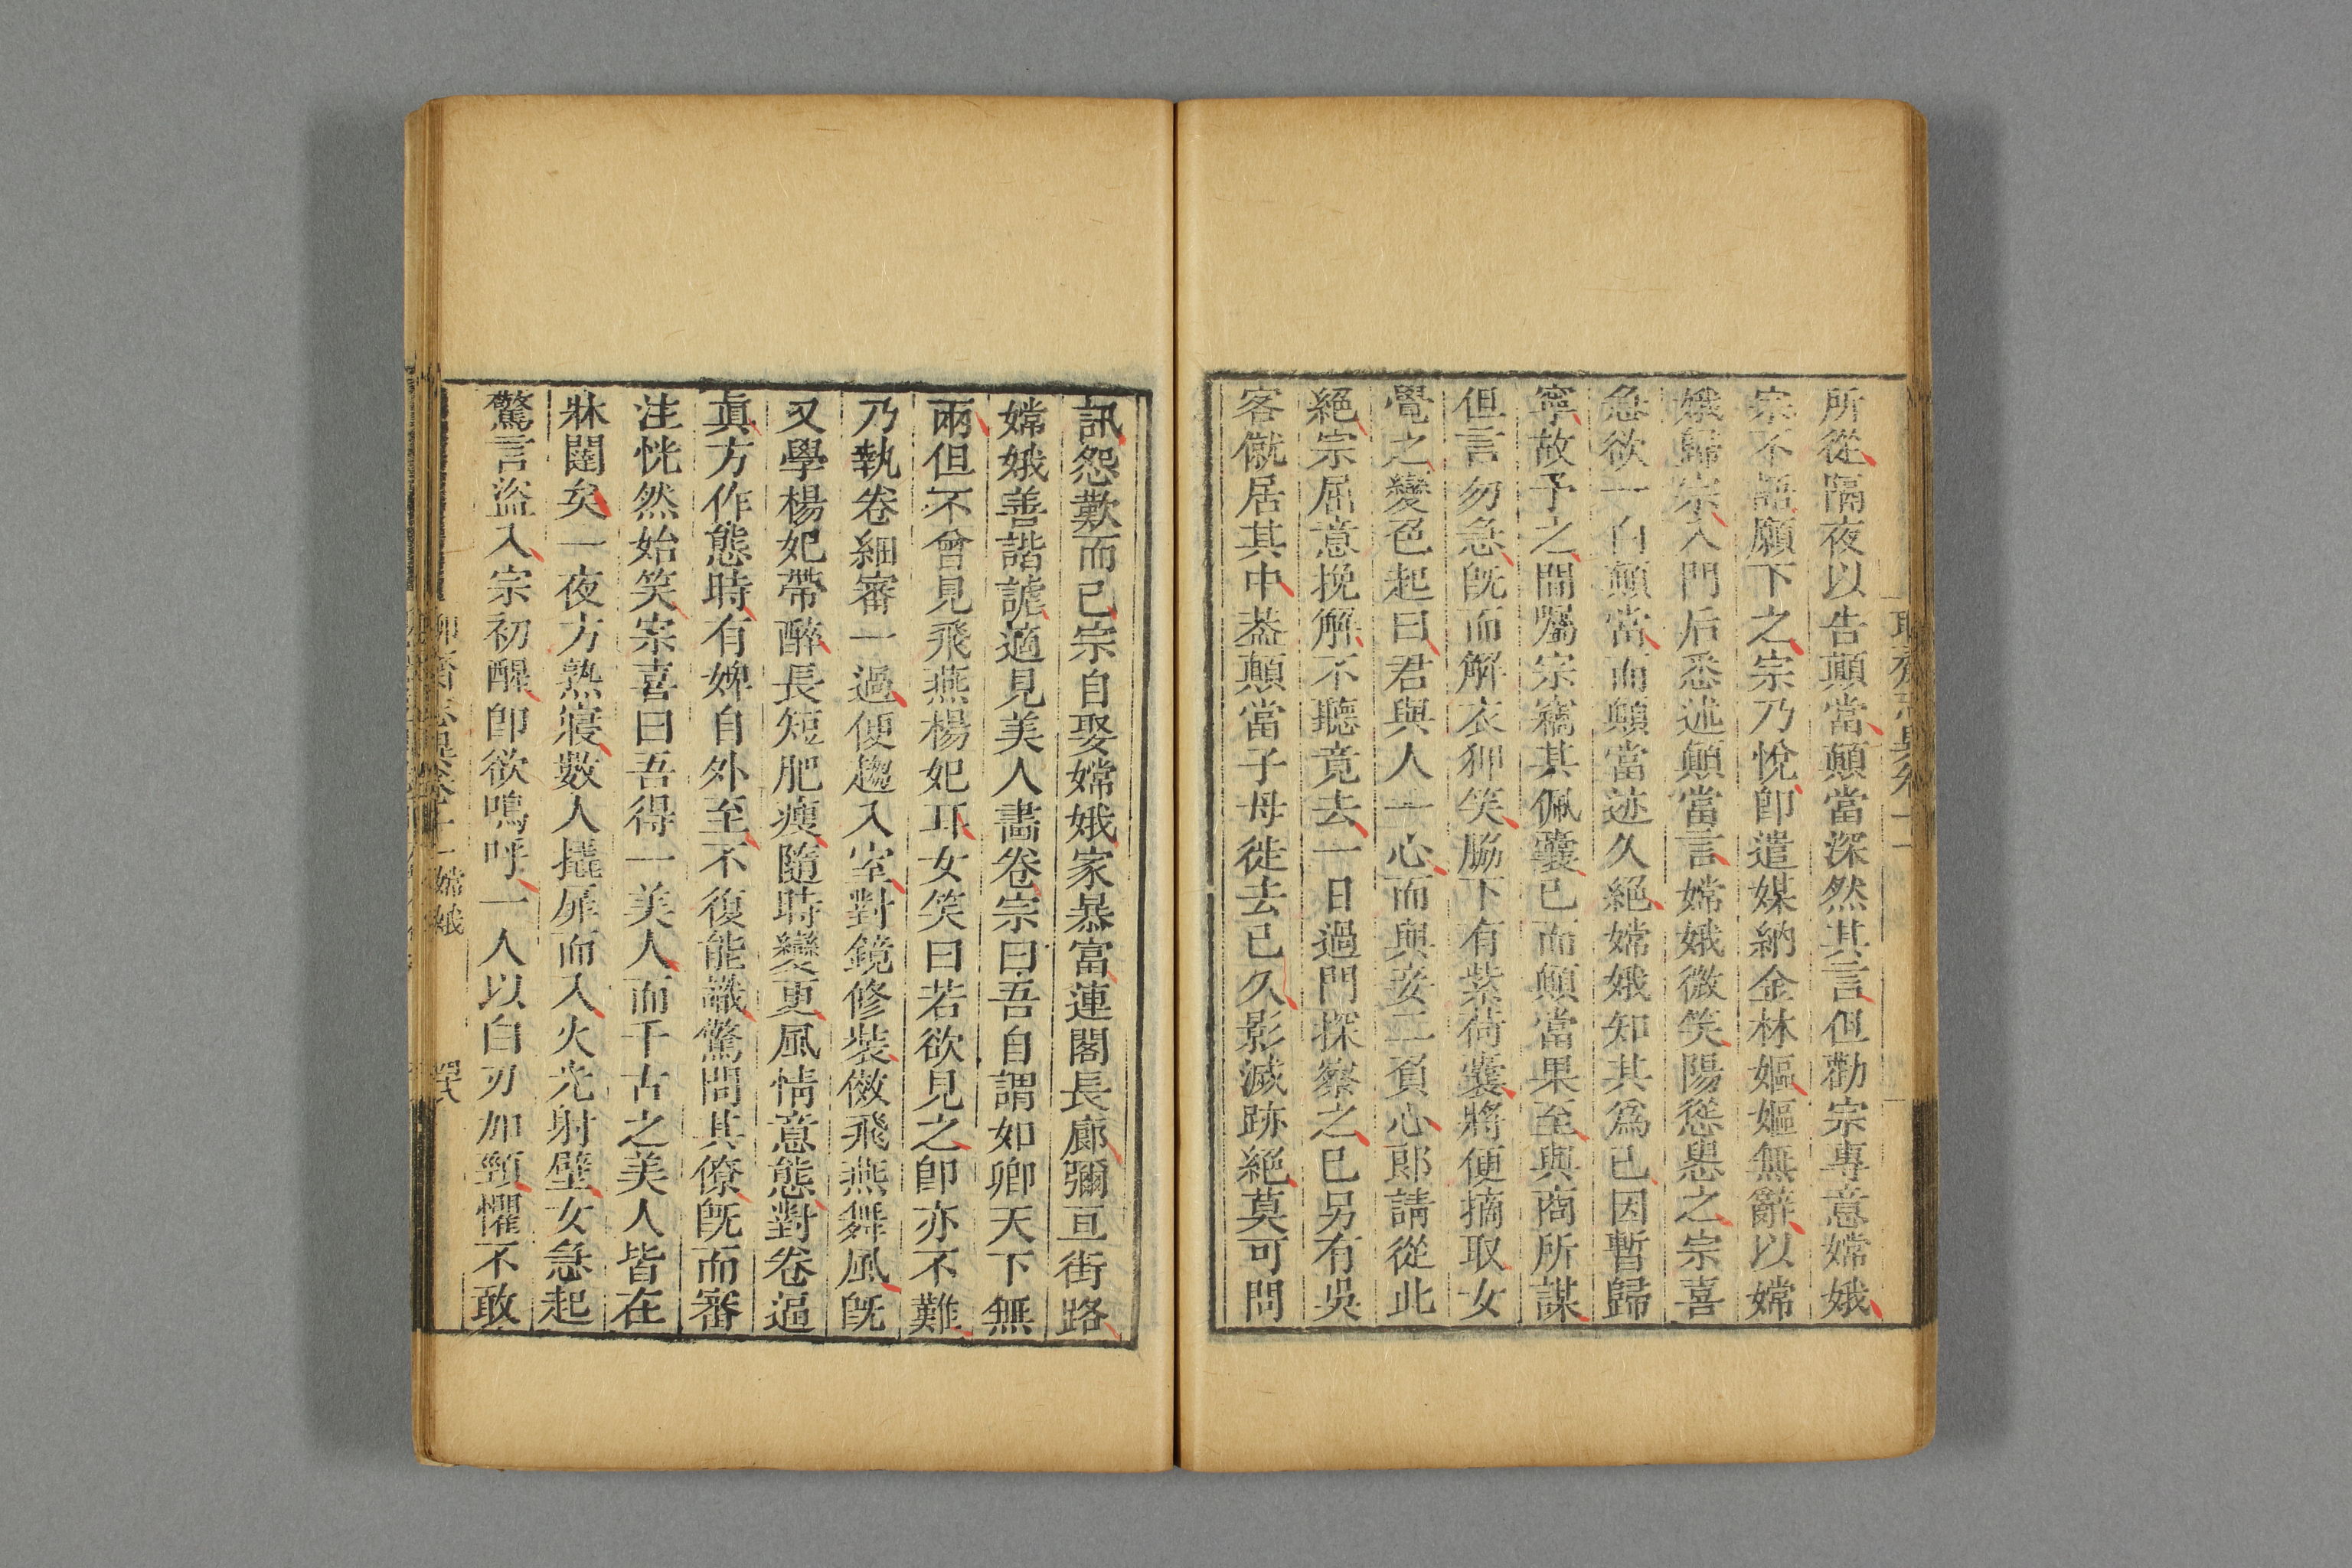 所從隔夜以告顛當顛當深然其言但勸宗專意嫦娥
宗不語願下之宗乃悅卽遣媒納金林嫗嫗無辭以嫦
娥歸宗入門后悉述顛當言嫦娥微笑陽慫恿之宗喜
急欲一白顛當而顛當迹久絕嫦娥知其爲己因暫歸
寧故予之間囑宗竊其佩囊已而顛當果至與商所謀
但言勿急旣而解衣狎笑脇下有紫荷囊將便摘取女
覺之變色起曰君與人一心而與妾二負心郞請從此
絕宗屈意挽解不聽竟去一日過門探察之已另有吳
客僦居其中葢顛當子母徙去已久影滅跡絕莫可問
訊怨歎而已宗自娶嫦娥家暴富連閣長廊彌亘街路
嫦娥善諧謔適見美人畵卷宗曰吾自謂如卿天下無
兩但不曾見飛燕楊妃耳女笑曰若欲見之卽亦不難
乃執卷細審一過便趨入室對鏡修裝傚飛燕舞風旣
又學楊妃帶醉長短肥瘦隨時變更風情意態對卷逼
眞方作態時有婢自外至不復能識驚問其僚旣而審
注恍然始笑宗喜曰吾得一美人而千古之美人皆在
牀闥矣一夜方熟寢數人撬扉而入火光射壁女急起
驚言盜入宗初醒卽欲鳴呼一人以白刃加頸懼不敢
嫦娥